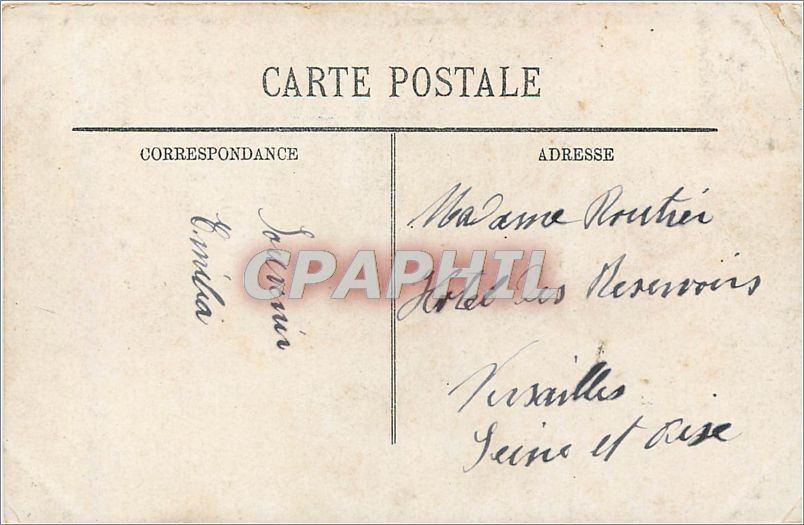 CARTE POSTALE
CORRESPONDANCE
ADRESSE
Souvenir
Emilia
Madame Routier
Hotel des Reservoirs
Versailles
Seine et Oise
CPAPHIL